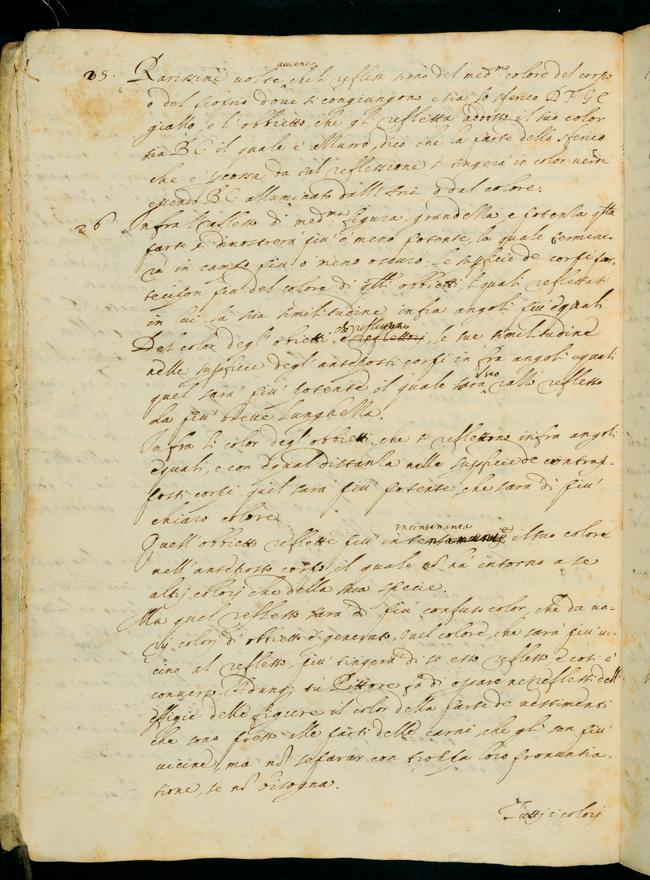 25. Rarissime volte avviene che li reflessi sieno del med.mo colore del corpo
o del proprio dove si congiungono sia lo sferico D F G E
giallo, e l'obbietto, che gli refletta addosso il suo color
sia B C il quale è azzurro, dico che la parte dello sferico
che è percossa da tal reflessione si tingerà in color verde
essendo B C alluminato dall'aria o dal colore.
26 Infra l'reflessi di med.ma figura, grandezza e potenza q.lla
parte si dimostrerà più o meno potente, la quale termine-
rà in campo più o meno oscuro. le superficie de corpi par-
tecipon più del colore di q.lli obbietti, i quali reflettati
in lui la sua similitudine infra angoli più equali
Del color degl'obietti che reflettano le sue similitudine
nelle superficie degl'anteposti corpi infra angoli equali
quel sarà più potente il quale harà il suo razzo reflesso
da più breve lunghezza.
Infra li color degl'obbietti, che si reflettono infra angoli
equali, e con equal distanza nella superficie de contrap-
posti corpi quel sarà più potente, che sarà di più
chiaro colore
Quell'obbietto reflette più intensamente il suo colore
nell'anteposto corpo, il quale nō hà intorno a se
altrj colorj che della sua specie.
Ma quel reflesso sara di più confuso color, che da va-
rij colorj d'obbietti è generato, quel colore, che sarà più vi-
cino al reflesso, più tingerà di se esso reflesso, e così è
converso. Adunq. tu Pittore fa di oprare ne reflessi dell'
effigie delle figure il color della parte de vestimenti
che sono presso alle parti delle carni, che gli son più
vicine, ma nō separar con troppa loro pronuntia-
tione, se nō bisogna.
Tuttj i colorj